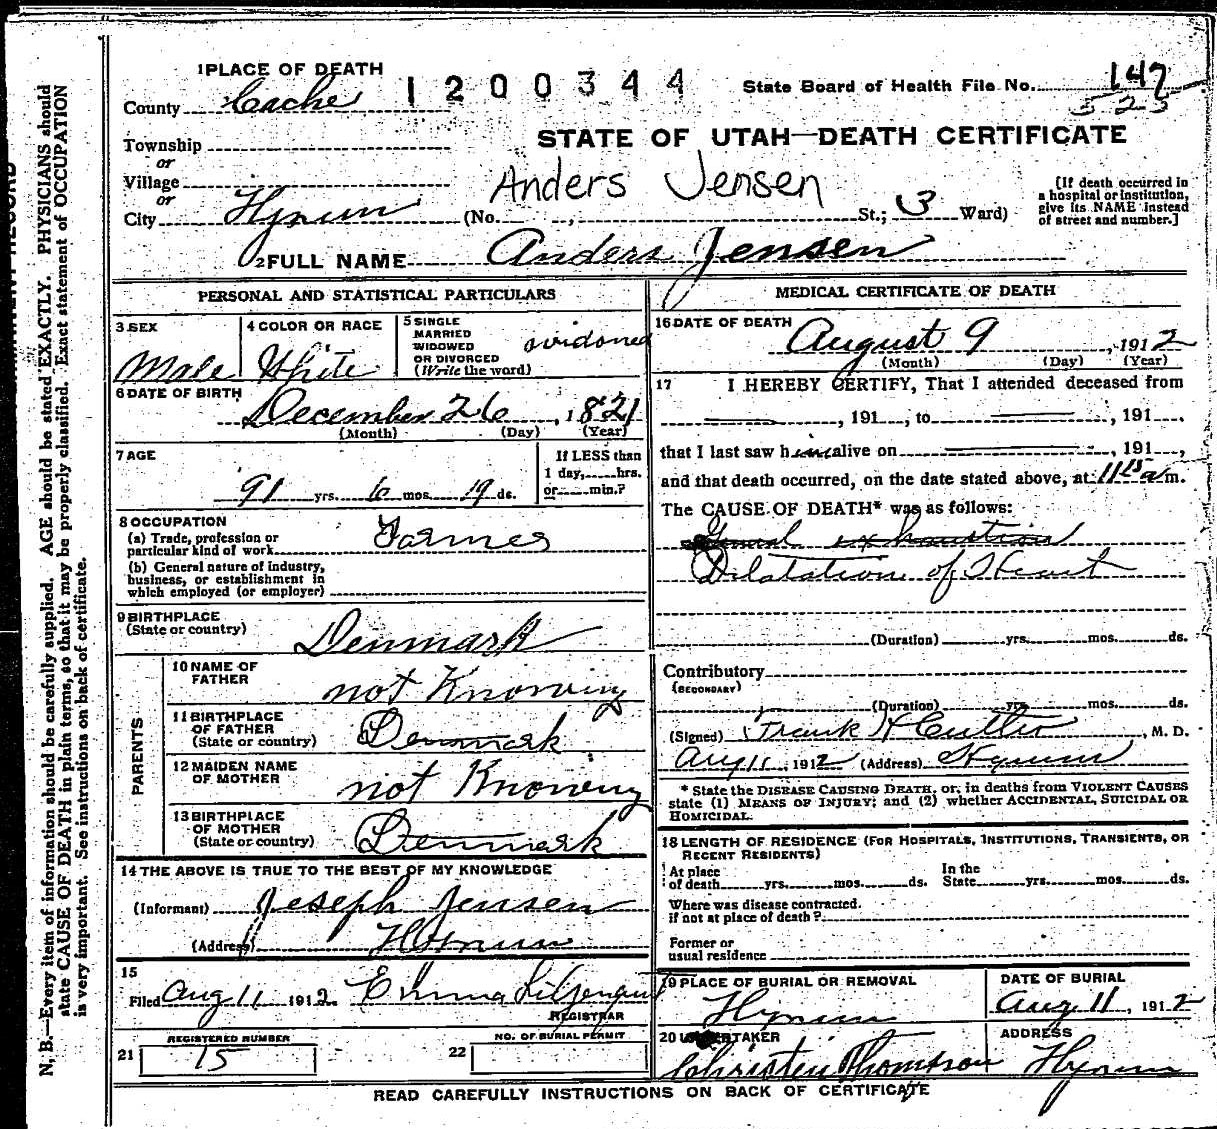 1 PLACE OF DEATH
1200344
State Board of Health File No. 147
523
County Cache
STATE OF UTAH—DEATH CERTIFICATE
Township
or
Village
or
City Hyrum (No. , St.; 3 Ward)
Anders Jensen
[If death occurred in a hospital or institution, give its NAME instead of street and number.]
2 FULL NAME Anders Jensen
PERSONAL AND STATISTICAL PARTICULARS
3 SEX
Male
4 COLOR OR RACE
White
5 SINGLE
MARRIED
WIDOWED
OR DIVORCED
(Write the word)
widowed
6 DATE OF BIRTH
December 26, 1821
(Month) (Day) (Year)
7 AGE
91 yrs. 6 mos. 19 ds.
If LESS than
1 day, hrs.
or min.?
8 OCCUPATION
(a) Trade, profession or
particular kind of work Farmer
(b) General nature of industry,
business, or establishment in
which employed (or employer)
9 BIRTHPLACE
(State or country)
Denmark
PARENTS
10 NAME OF
FATHER
not Knowing
11 BIRTHPLACE
OF FATHER
(State or country)
Denmark
12 MAIDEN NAME
OF MOTHER
not Knowing
13 BIRTHPLACE
OF MOTHER
(State or country)
Denmark
14 THE ABOVE IS TRUE TO THE BEST OF MY KNOWLEDGE
(Informant) Joseph Jensen
(Address) Hyrum
15
Filed Aug 11 1912 Emma
REGISTRAR
REGISTERED NUMBER
21 15
NO. OF BURIAL PERMIT
22
MEDICAL CERTIFICATE OF DEATH
16 DATE OF DEATH
August 9, 1912
(Month) (Day) (Year)
17 I HEREBY CERTIFY, That I attended deceased from
, 191 , to , 191 .
that I last saw him alive on , 191 ,
and that death occurred, on the date stated above, at 11 15 a m.
The CAUSE OF DEATH* was as follows:
General exhaustion
Dilatation of Heart
(Duration) yrs. mos. ds.
Contributory
(SECONDARY)
(Duration) yrs. mos. ds.
(Signed) Frank H Cutler, M. D.
Aug 11, 1912 (Address) Hyrum
* State the DISEASE CAUSING DEATH, or, in deaths from VIOLENT CAUSES
state (1) MEANS OF INJURY; and (2) whether ACCIDENTAL, SUICIDAL OR
HOMICIDAL.
18 LENGTH OF RESIDENCE (FOR HOSPITALS, INSTITUTIONS, TRANSIENTS, OR
RECENT RESIDENTS)
At place
of death yrs. mos. ds.
In the
State yrs. mos. ds.
Where was disease contracted.
if not at place of death?
Former or
usual residence
19 PLACE OF BURIAL OR REMOVAL
Hyrum
DATE OF BURIAL
Aug 11, 1912
20 UNDERTAKER
Christen Thomson
ADDRESS
Hyrum
READ CAREFULLY INSTRUCTIONS ON BACK OF CERTIFICATE
N. B.—Every item of information should be carefully supplied. AGE should be stated EXACTLY. PHYSICIANS should
state CAUSE OF DEATH in plain terms, so that it may be properly classified. Exact statement of OCCUPATION
is very important. See instructions on back of certificate.